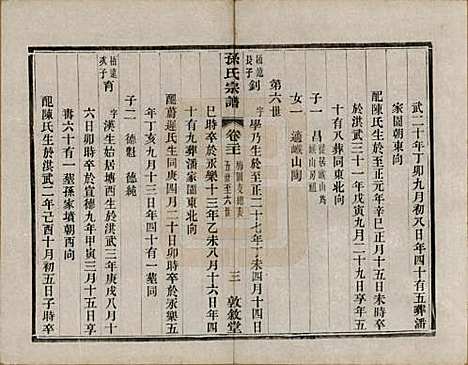 武二十年丁卯九月初八日年四十有五葬潘
家園朝東向
配陳氏生於至正元年辛巳正月十五日卒
於洪武三十一年戊寅九月二十九日享年五
十有八葬同東北向
子一 昌
女一 適峨山陶
第六世
植遠長子 釗 字學乃生於至正二十七年丁未四月十四日
巳時卒於永樂十三年乙未八月十六日年四
十有九葬潘家園東北向
配蔚遲氏生同庚四月二十日時卒於永樂五
年丁亥九月十三日年四十有一墓同向
子二 德魁 德純
植遠次子 育 字漢生姑居塘西生於洪武三年庚戌八月十
六日卯時卒於宣德九年甲寅三月十五日享
壽六十有一墓孫家墳朝西向
配陳氏生於洪武二年己酉十月初五日子時卒
孫氏宗譜
卷三十
三
敦敘堂